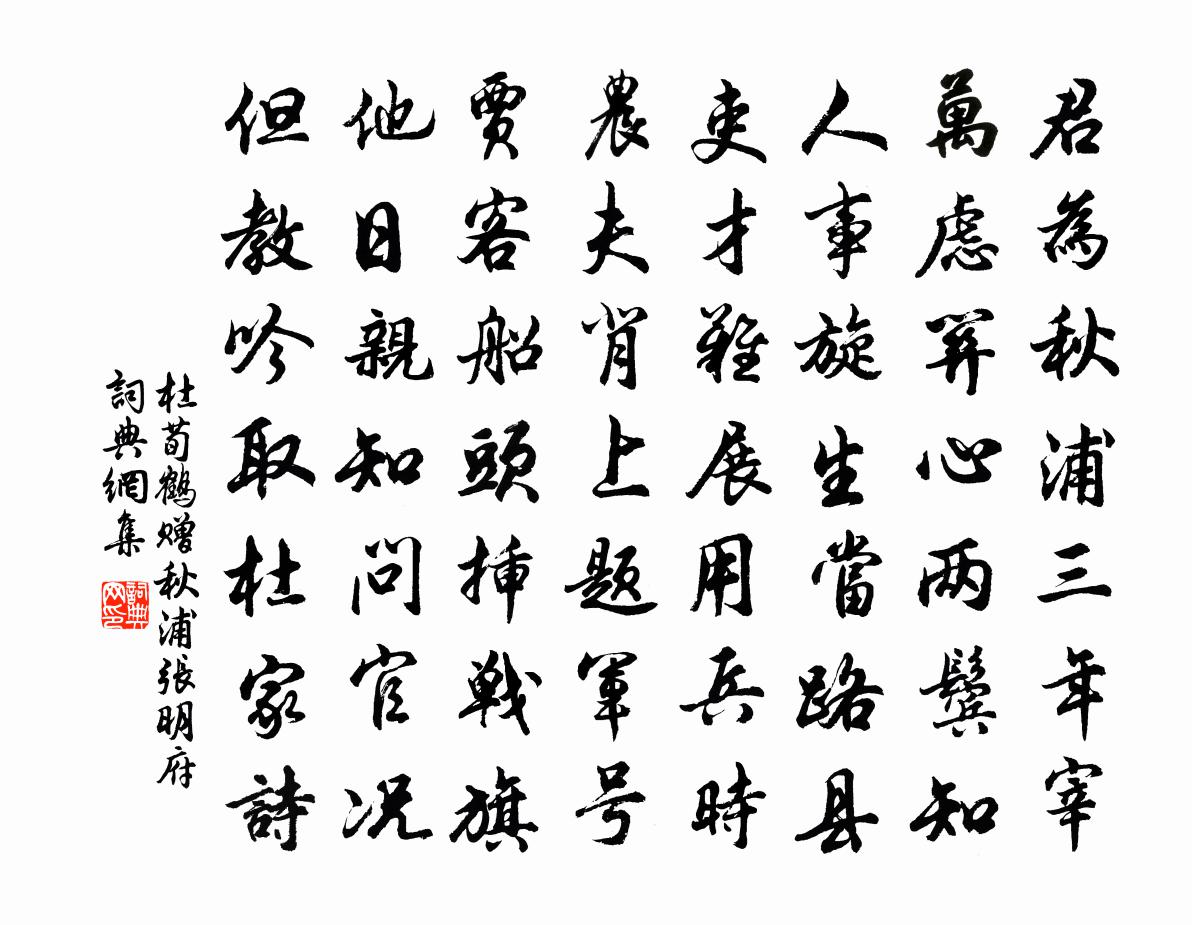 君為秋浦三年宰
萬慮關心两鬓知
人事旋生當路县
吏才難展用兵時
農夫背上题軍号
賈客船頭挿戦旗
他日親知問官况
但教吟取杜家詩
杜荀鶴赠秋浦張明府
詞典網集
詞典网印